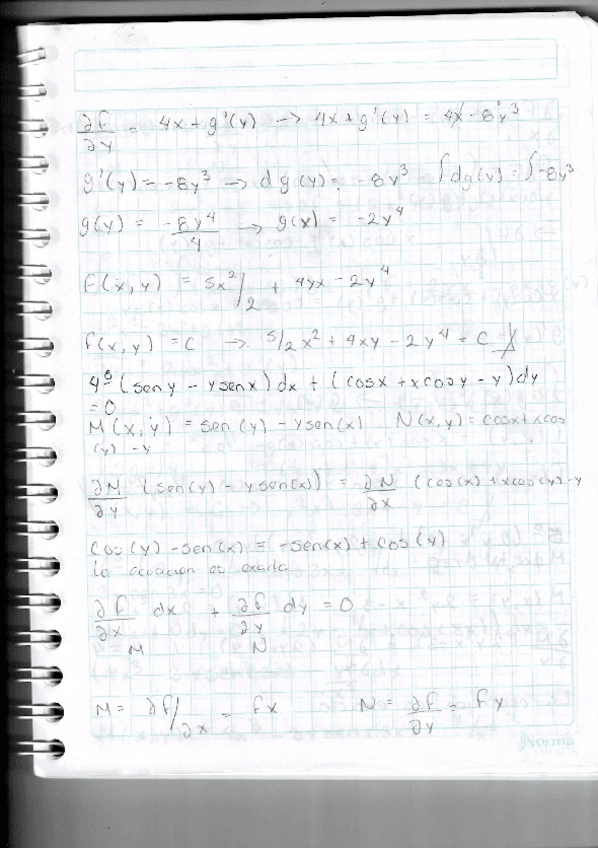 ∂f/∂y = 4x + g'(y) → 4x + g'(y) = 4x - 8y³
g'(y) = -8y³ → dg(y) = -8y³ ∫dg(y) = ∫-8y³
g(y) = -8y⁴/4 → g(x) = -2y⁴
f(x,y) = 5x²/2 + 4yx - 2y⁴
f(x,y) = C → 5/2 x² + 4xy - 2y⁴ = C
4º (seny - ysenx)dx + (cosx + xcosy - y)dy
= 0
M(x,y) = sen(y) - ysen(x) N(x,y) = cosx + xcos
(y) - y
∂M/∂y (sen(y) - ysen(x)) = ∂N/∂x (cos(x) + xcos(y) - y
Cos(y) - sen(x) = -sen(x) + cos(y)
la ecuacion es exacta
∂f/∂x dx + ∂f/∂y dy = 0
M N
M = ∂f/∂x = fx N = ∂f/∂y = fy
Norma